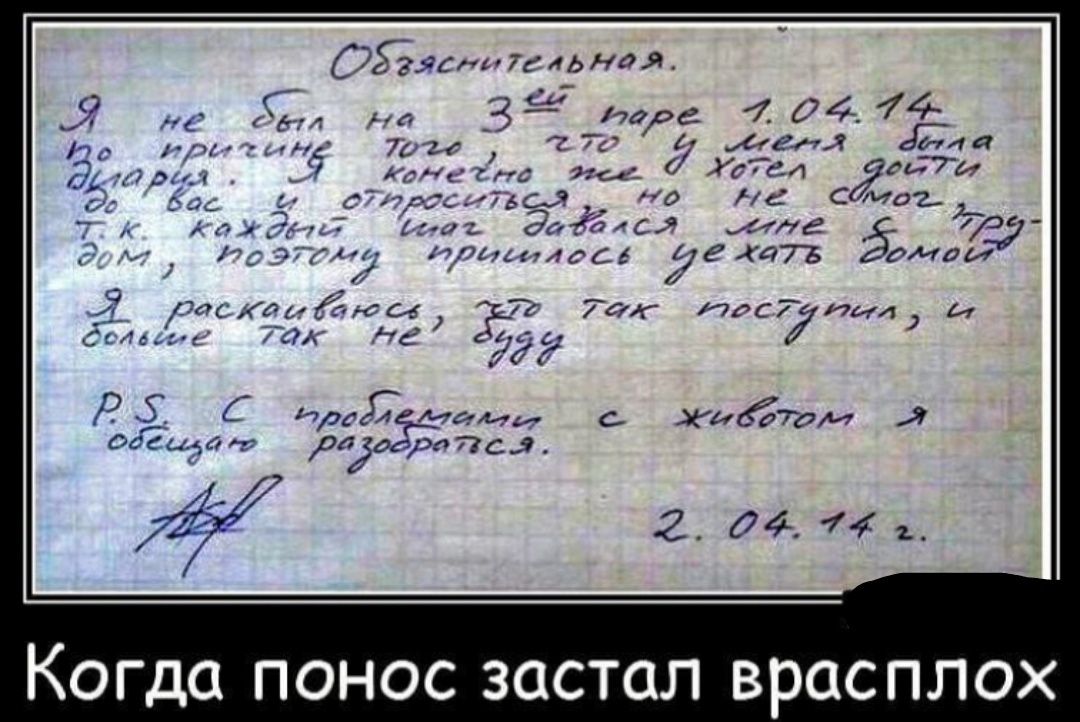 Объяснительная.
Я не был на 3ей паре 1.04.14
по причине того, что у меня была
диария. Я конечно же хотел дойти
до вас и отпроситься, но не смог,
т.к. каждый шаг давался мне с тру-
дом, поэтому пришлось уехать домой
Я раскаиваюсь, что так поступил, и
больше так не буду
P.S. С проблемами с животом я
обещаю разобраться.
2.04.14 г.
Когда понос застал врасплох